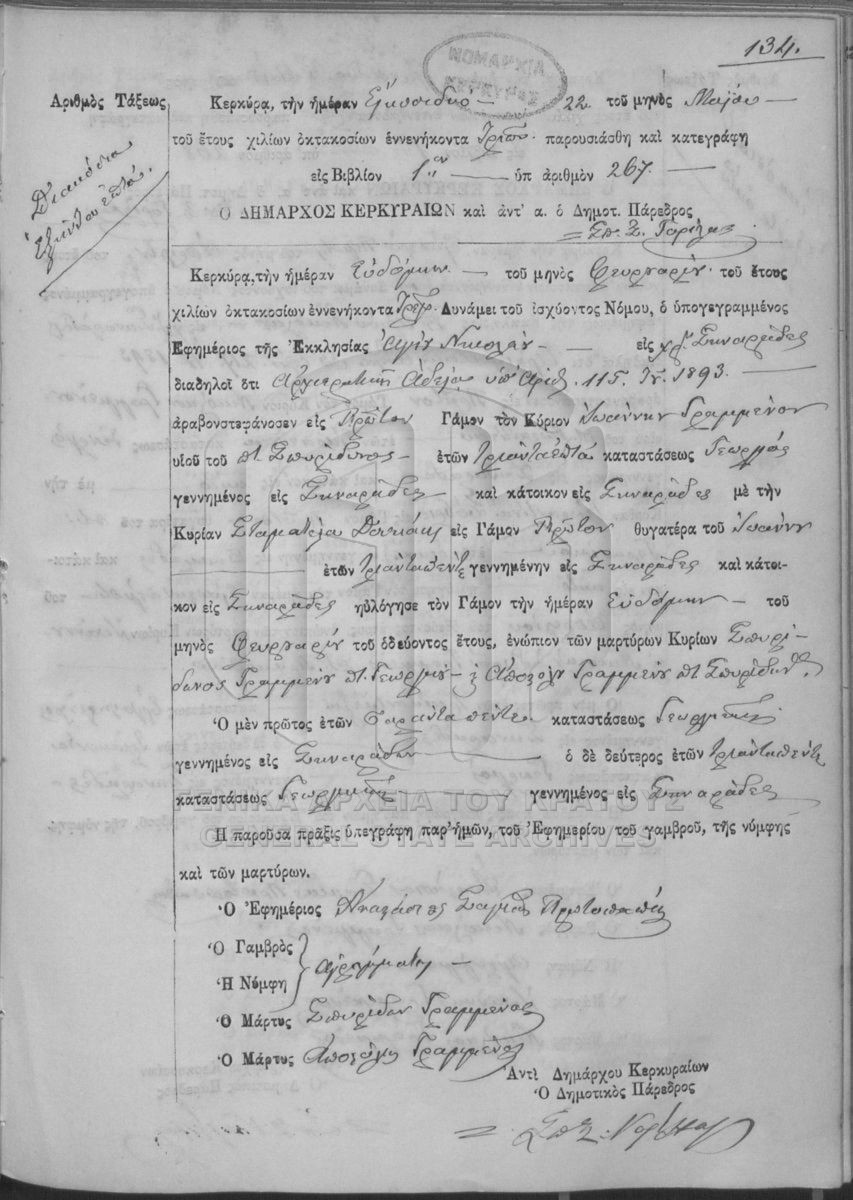 134.
Ἀριθμὸς Τάξεως
Διακόσια
ἑξήκοντα ἑπτά.
Κερκύρα, τὴν ἡμέραν 22 τοῦ μηνὸς Μαΐου
τοῦ ἔτους χιλίων ὀκτακοσίων ἐννενήκοντα τρία παρουσιάσθη καὶ κατεγράφη
εἰς Βιβλίον 1ον ὑπ ἀριθμὸν 267.
Ὁ ΔΗΜΑΡΧΟΣ ΚΕΡΚΥΡΑΙΩΝ καὶ ἀντ' α. ὁ Δημοτ. Πάρεδρος
Σπ. Σ.
Κερκύρα, τὴν ἡμέραν ἑβδόμην τοῦ μηνὸς Φευρουαρίου τοῦ ἔτους
χιλίων ὀκτακοσίων ἐννενήκοντα τρία. Δυνάμει τοῦ ἰσχύοντος Νόμου, ὁ ὑπογεγραμμένος
Ἐφημέριος τῆς Ἐκκλησίας Ἁγίου Νικολάου εἰς χ. Συναράδες
διαδηλοῖ ὅτι Ἀρχιερατικῇ Ἀδείᾳ ὑπ' Ἀριθ. 115. 1893.
ἀραβονστεφάνοσεν εἰς Πρῶτον Γάμον τὸν Κύριον Ἰωάννην Γραμμένον
υἱοῦ τοῦ πτ. Σπυρίδωνος ἐτῶν τριάντα ἑπτά καταστάσεως Γεωργός
γεννημένος εἰς Συναράδες καὶ κάτοικον εἰς Συναράδες μὲ τὴν
Κυρίαν Σταματέλα εἰς Γάμον Πρῶτον θυγατέρα τοῦ Ἰωάννου
ἐτῶν τριάντα πέντε γεννημένην εἰς Συναράδες καὶ κάτοι-
κον εἰς Συναράδες ηὐλόγησε τὸν Γάμον τὴν ἡμέραν ἑβδόμην τοῦ
μηνὸς Φευρουαρίου τοῦ ὁδεύοντος ἔτους, ἐνώπιον τῶν μαρτύρων Κυρίων Σπυρί-
δωνος Γραμμένου πτ. Γεωργίου Ἀποστόλου Γραμμένου πτ. Σπυρίδωνος.
Ὁ μὲν πρῶτος ἐτῶν σαράντα πέντε καταστάσεως
γεννημένος εἰς Συναράδων ὁ δὲ δεύτερος ἐτῶν τριάντα πέντε
καταστάσεως γεννημένος εἰς Συναράδες
ΓΕΝΙΚΑ ΑΡΧΕΙΑ ΤΟΥ ΚΡΑΤΟΥΣ
GENERAL STATE ARCHIVES
Ἡ παροῦσα πρᾶξις ὑπεγράφη παρ' ἡμῶν, τοῦ Ἐφημερίου τοῦ γαμβροῦ, τῆς νύμφης
καὶ τῶν μαρτύρων.
Ὁ Ἐφημέριος Πρωτοπαπᾶς
Ὁ Γαμβρὸς
Ἡ Νύμφη ἀγράμματοι
Ὁ Μάρτυς Σπυρίδων Γραμμένος
Ὁ Μάρτυς Ἀποστόλης Γραμμένος
Ἀντὶ Δημάρχου Κερκυραίων
Ὁ Δημοτικὸς Πάρεδρος
Σπ. Σ.